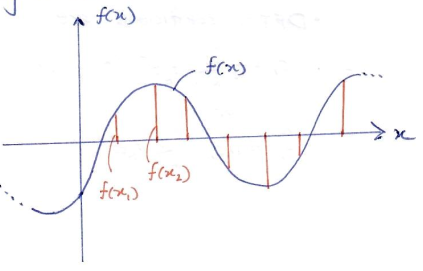 f(x)
f(x)
x
f(x₁)
f(x₂)
...
...